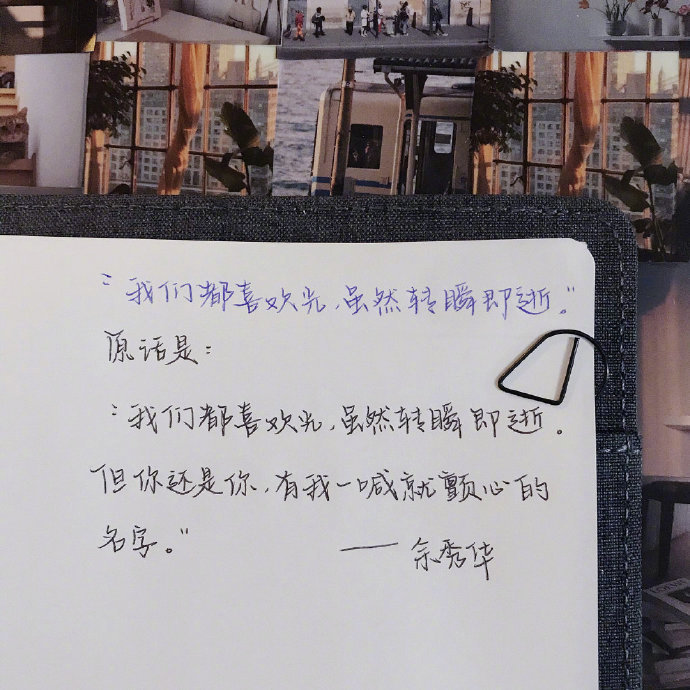 “我们都喜欢光,虽然转瞬即逝。”
原话是：
“我们都喜欢光,虽然转瞬即逝。
但你还是你,有我一喊就颤心的
名字。”
——余秀华